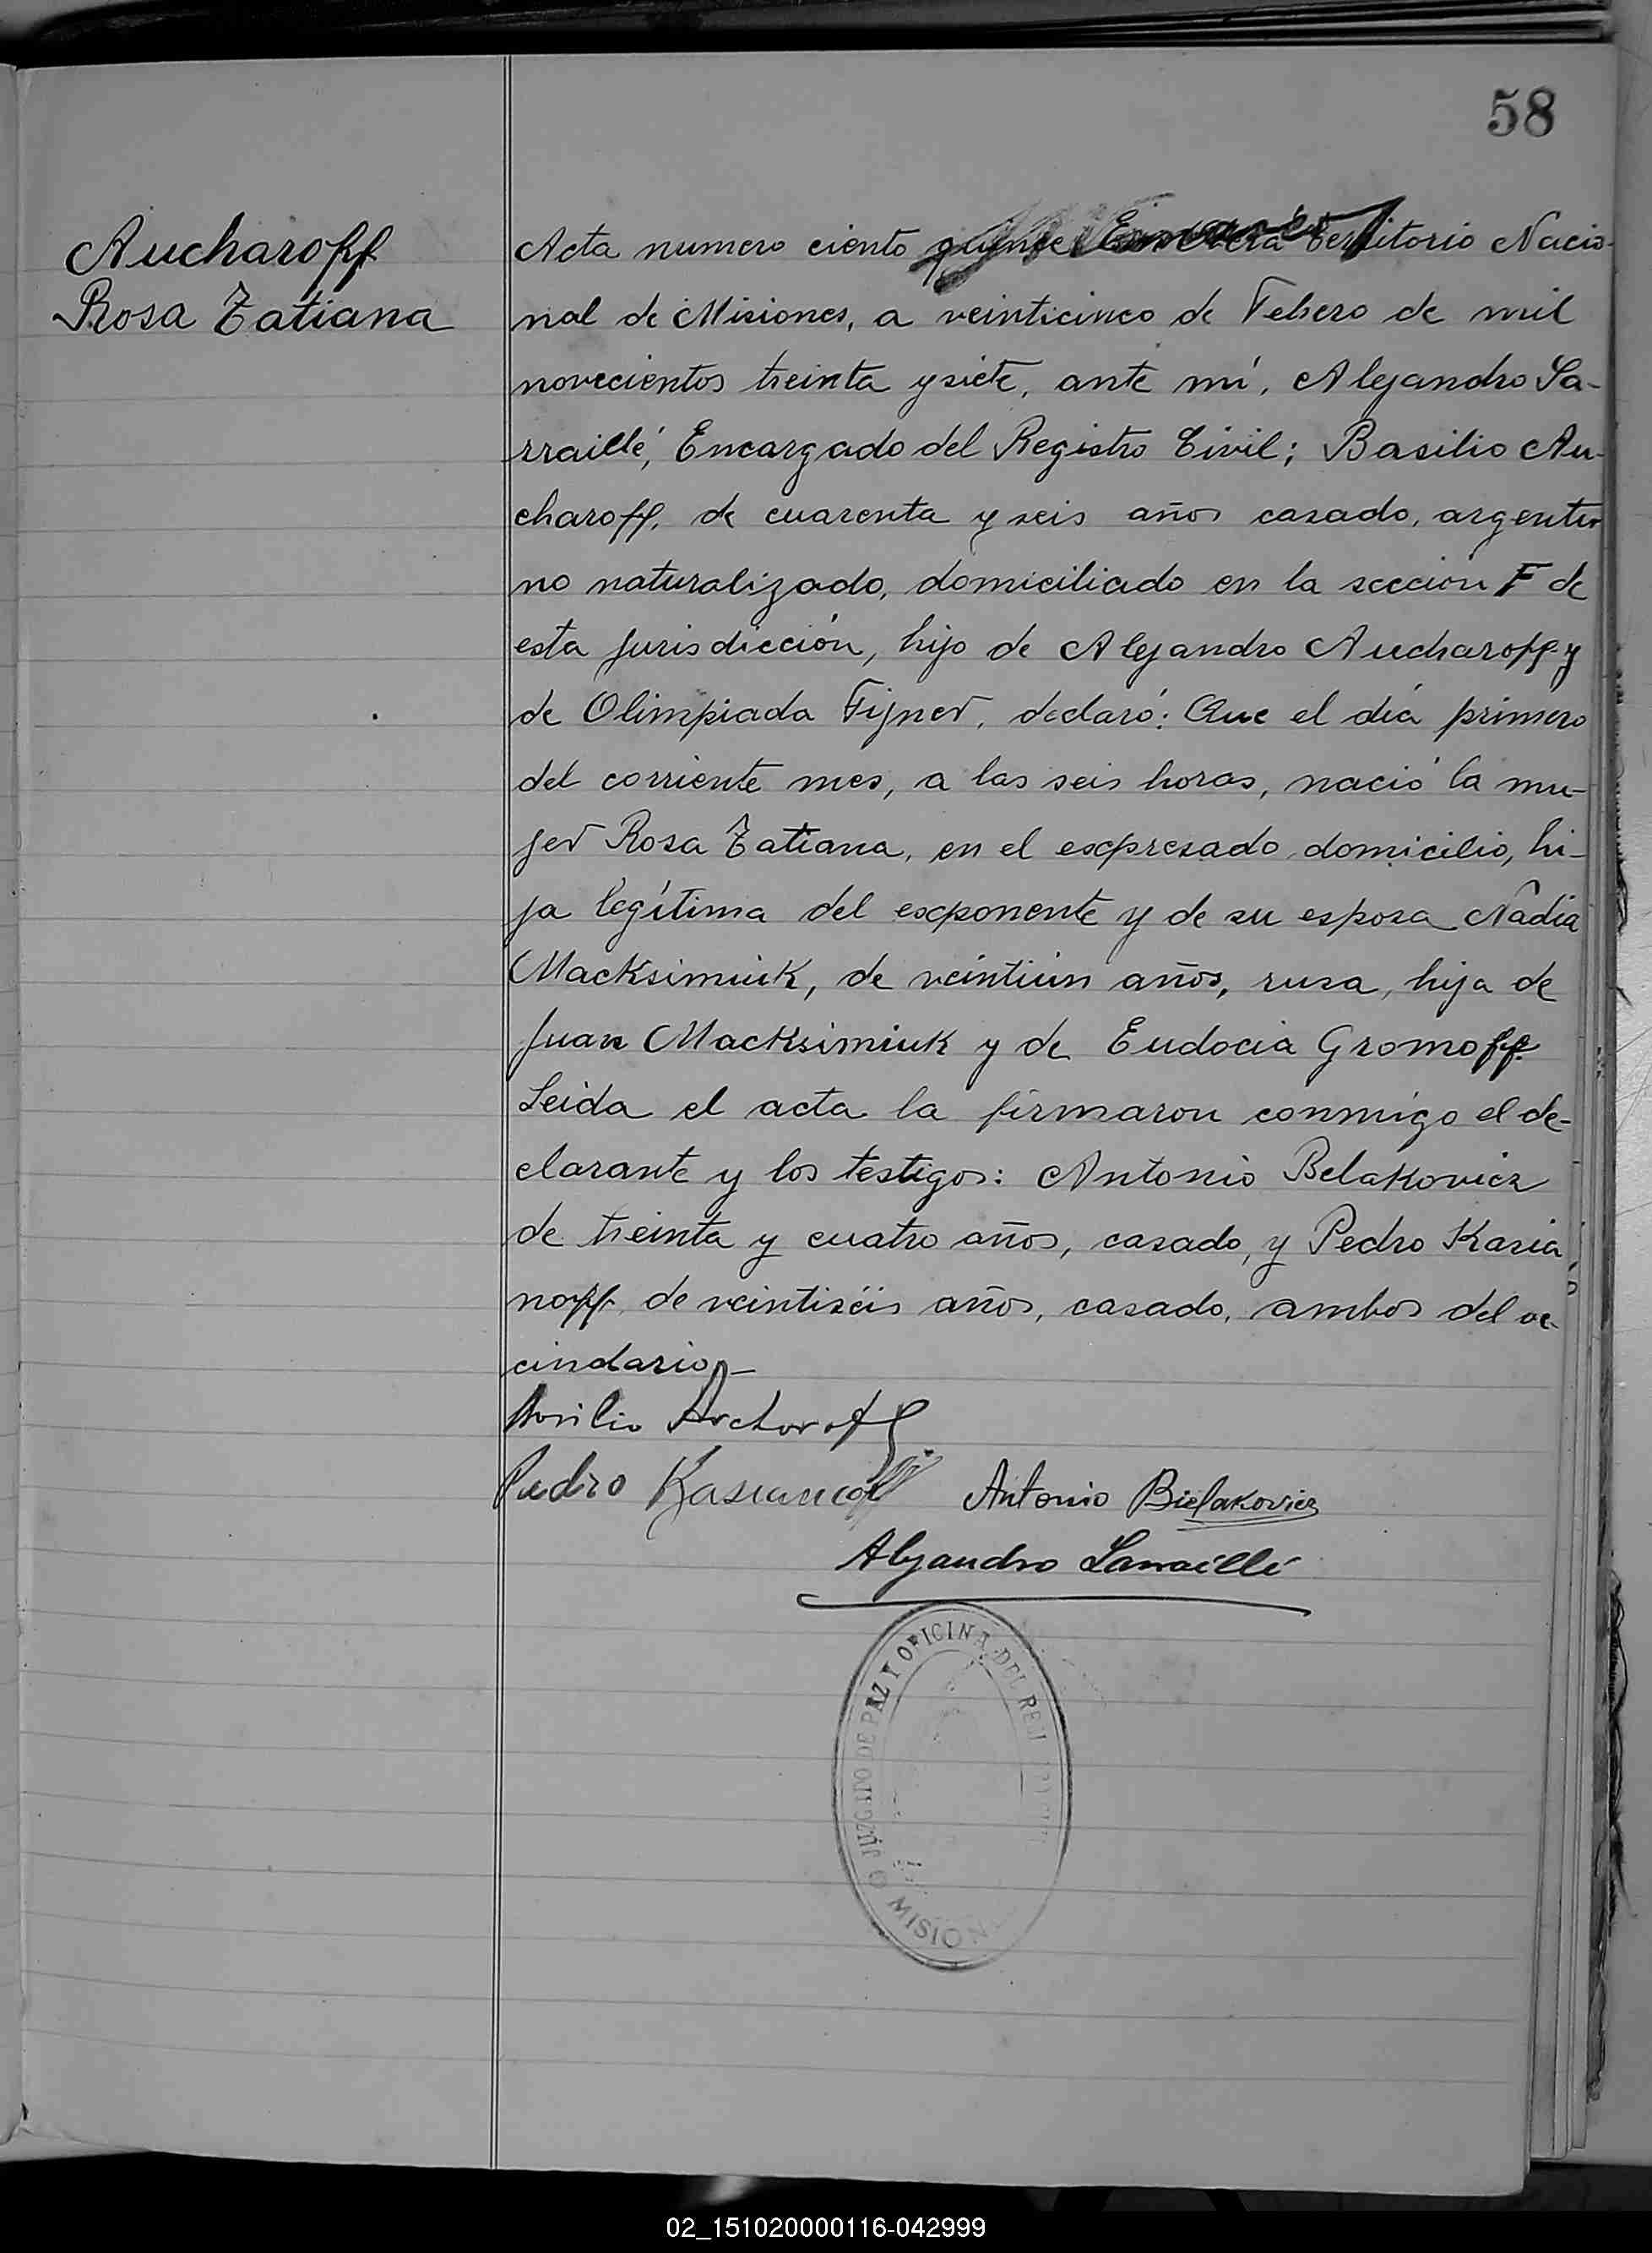 58
Aucharoff
Rosa Tatiana
Acta numero ciento quince En Oberá territorio Nacio-
nal de Misiones, a veinticinco de Febero de mil
novecientos treinta y siete, ante mí, Alejandro La-
rraillé, Encargado del Registro Civil; Basilio Au-
charoff, de cuarenta y seis años casado, argenti-
no naturalizado, domiciliado en la sección F de
esta jurisdicción, hijo de Alejandro Aucharoff y
de Olimpiada Figner, declaró: Que el día primero
del corriente mes, a las seis horas, nació la mu-
jer Rosa Tatiana, en el expresado domicilio, hi-
ja legítima del exponente y de su esposa Nadia
Macksimiuk, de veintiún años, rusa, hija de
Juan Macksimiuk y de Eudocia Gromoff.
Leida el acta la firmaron conmigo el de-
clarante y los testigos: Antonio Belakovicz
de treinta y cuatro años, casado, y Pedro Kasia
noff, de veintiséis años, casado, ambos del ve-
cindario.-
Pedro Kasianoff Antonio Bielakovicz
Alejandro Larraillé
JUZGADO DE PAZ Y OFICINA DEL
MISION
02_151020000116-042999